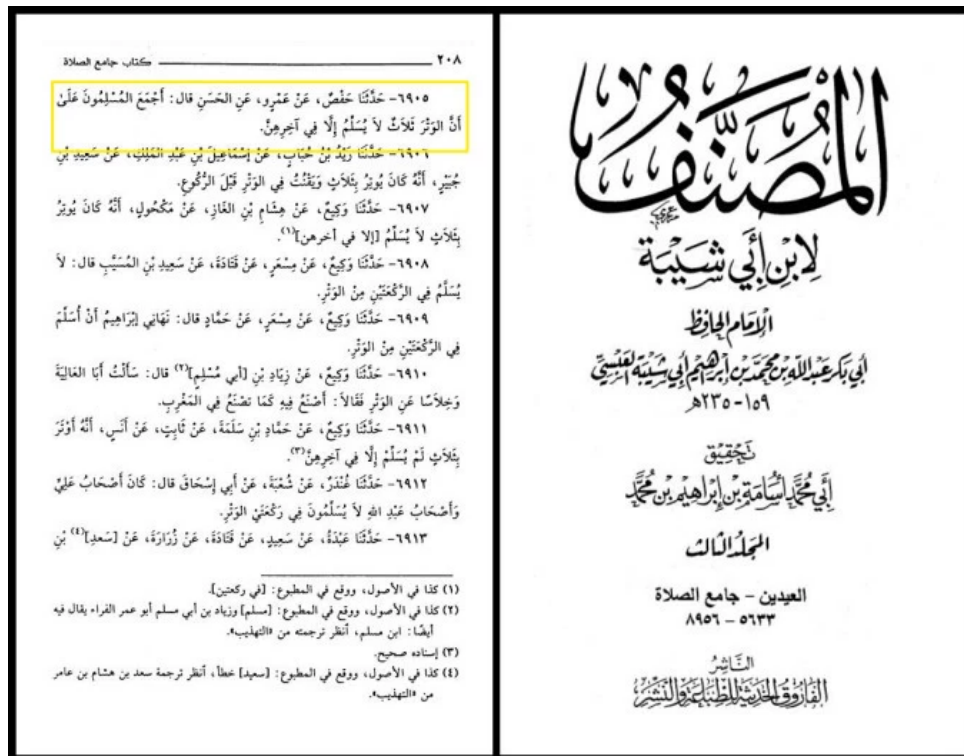 ٢٠٨ كتاب جامع الصلاة
٦٩٠٥- حَدَّثَنَا حَفْصٌ، عَنْ عَمْرٍو، عَنِ الحَسَنِ قال: أَجْمَعَ المُسْلِمُونَ عَلَىٰ
أَنَّ الوَتْرَ ثَلاَثٌ لاَ يُسَلَّمُ إِلَّا فِي آخِرِهِنَّ.
٦٩٠٦- حَدَّثَنَا زَيْدُ بْنُ حُبَابٍ، عَنْ إِسْمَاعِيلَ بْنِ عَبْدِ المَلِكِ، عَنْ سَعِيدِ بْنِ
جُبَيْرٍ، أَنَّهُ كَانَ يُوتِرُ بِثَلاَثٍ وَيَقْنُتُ فِي الوَتْرِ قَبْلَ الرُّكُوعِ.
٦٩٠٧- حَدَّثَنَا وَكِيعٌ، عَنْ هِشَامِ بْنِ الغَازِ، عَنْ مَكْحُولٍ، أَنَّهُ كَانَ يُوتِرُ
بِثَلاَثٍ لاَ يُسَلِّمُ [إلا في آخرهن](١).
٦٩٠٨- حَدَّثَنَا وَكِيعٌ، عَنْ مِسْعَرٍ، عَنْ قَتَادَةَ، عَنْ سَعِيدِ بْنِ المُسَيَّبِ قال: لاَ
يُسَلَّمُ فِي الرَّكْعَتَيْنِ مِنَ الوَتْرِ.
٦٩٠٩- حَدَّثَنَا وَكِيعٌ، عَنْ مِسْعَرٍ، عَنْ حَمَّادٍ قال: نَهَانِي إِبْرَاهِيمُ أَنْ أُسَلِّمَ
فِي الرَّكْعَتَيْنِ مِنَ الوَتْرِ.
٦٩١٠- حَدَّثَنَا وَكِيعٌ، عَنْ زِيَادِ بْنِ [أبي مُسْلِمٍ](٢) قال: سَأَلْتُ أَبَا العَالِيَةَ
وَخِلاَسًا عَنِ الوَتْرِ فَقَالاَ: أَصْنَعُ فِيهِ كَمَا تَصْنَعُ فِي المَغْرِبِ.
٦٩١١- حَدَّثَنَا وَكِيعٌ، عَنْ حَمَّادِ بْنِ سَلَمَةَ، عَنْ ثَابِتٍ، عَنْ أَنَسٍ، أَنَّهُ أَوْتَرَ
بِثَلاَثٍ لَمْ يُسَلِّمْ إِلَّا فِي آخِرِهِنَّ(٣).
٦٩١٢- حَدَّثَنَا غُنْدَرٌ، عَنْ شُعْبَةَ، عَنْ أَبِي إِسْحَاقَ قال: كَانَ أَصْحَابُ عَلِيٍّ
وَأَصْحَابُ عَبْدِ اللهِ لاَ يُسَلِّمُونَ فِي رَكْعَتَيِ الوَتْرِ.
٦٩١٣- حَدَّثَنَا عَبْدَةُ، عَنْ سَعِيدٍ، عَنْ قَتَادَةَ، عَنْ زُرَارَةَ، عَنْ [سَعدِ](٤) بْنِ
(١) كذا في الأصول، ووقع في المطبوع: [في ركعتين].
(٢) كذا في الأصول، ووقع في المطبوع: [مسلم] وزياد بن أبي مسلم أبو عمر الفراء يقال فيه
أيضًا: ابن مسلم، أنظر ترجمته من «التهذيب».
(٣) إسناده صحيح.
(٤) كذا في الأصول، ووقع في المطبوع: [سعيد] خطأ، أنظر ترجمة سعد بن هشام بن عامر
من «التهذيب».
المُصَنَّفُ
لِابْنِ أَبِي شَيْبَة
الإمام الحافظ
أبي بكر عبد الله بن محمد بن إبراهيم أبي شيبة العبسي
١٥٩-٢٣٥هـ
تحقيق
أبي محمد أسامة بن إبراهيم بن محمد
المجلد الثالث
العيدين - جامع الصلاة
٥٦٣٣ - ٨٩٥٦
الناشر
الفاروق الحديثة للطباعة والنشر